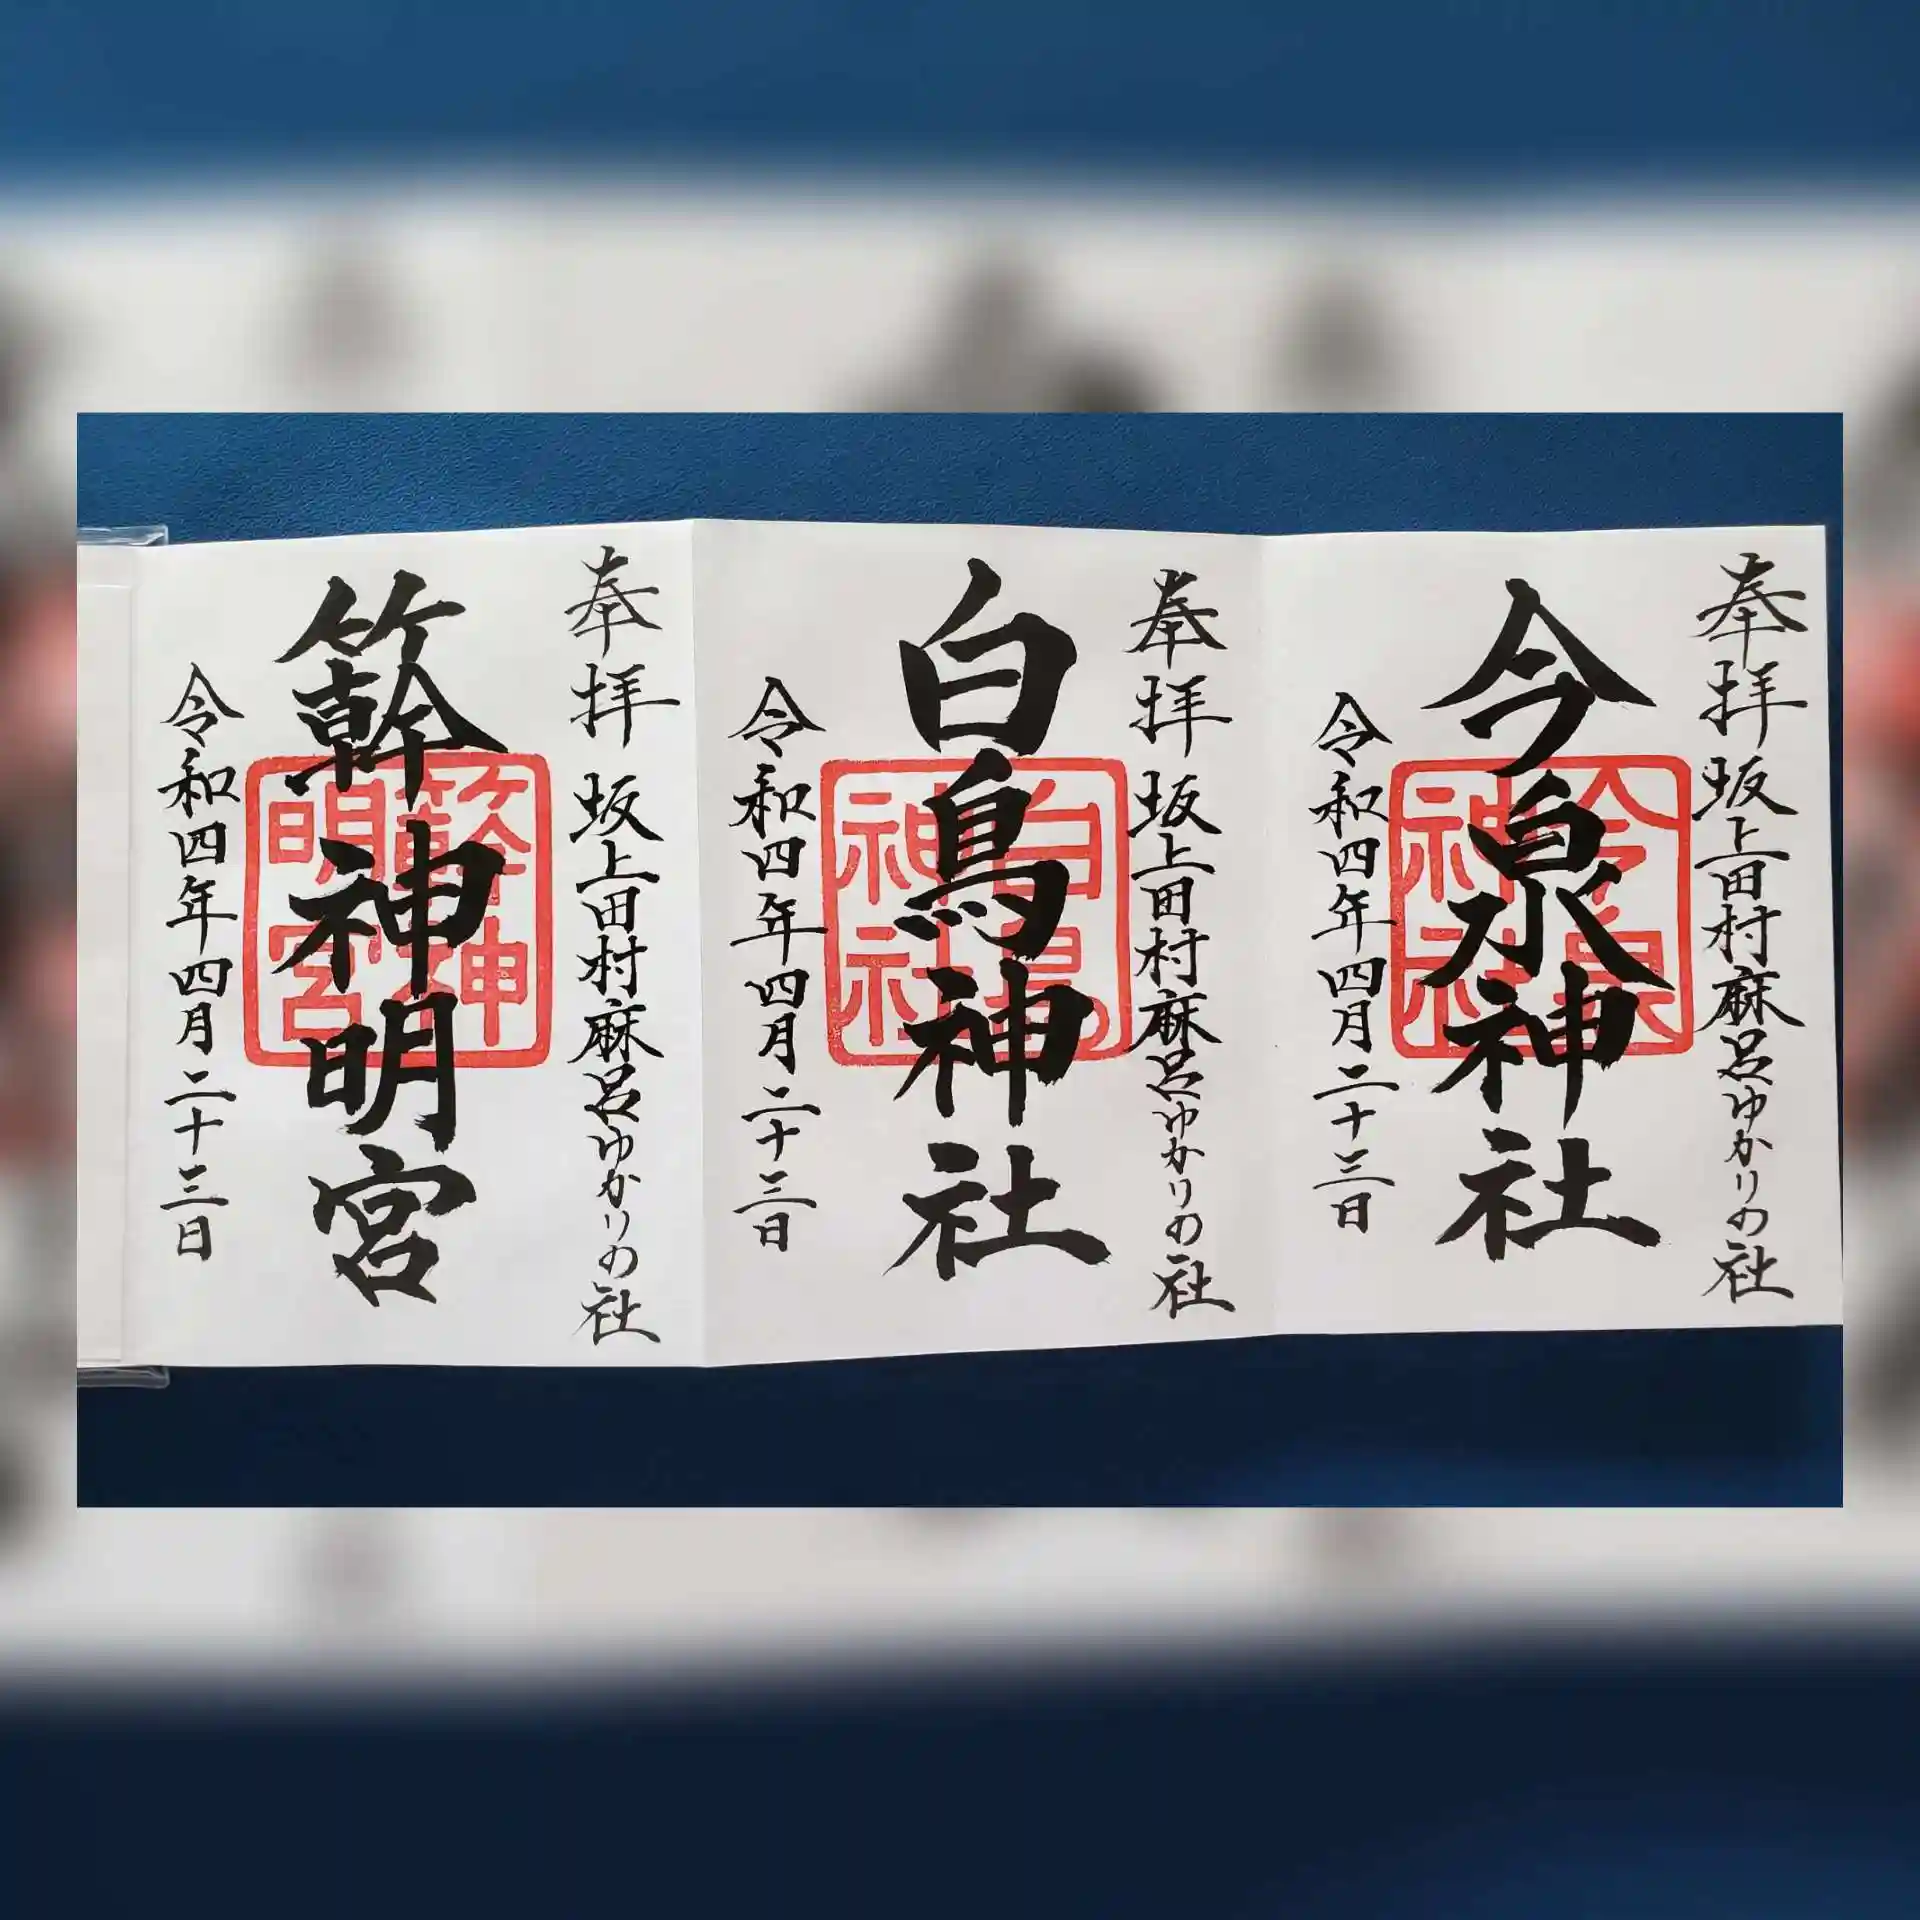 奉拝 坂上田村麻呂ゆかりの社
今泉神社
今泉神社
令和四年四月二十三日
奉拝 坂上田村麻呂ゆかりの社
白鳥神社
白鳥神社
令和四年四月二十三日
奉拝 坂上田村麻呂ゆかりの社
簳神明宮
簳神明宮
令和四年四月二十三日